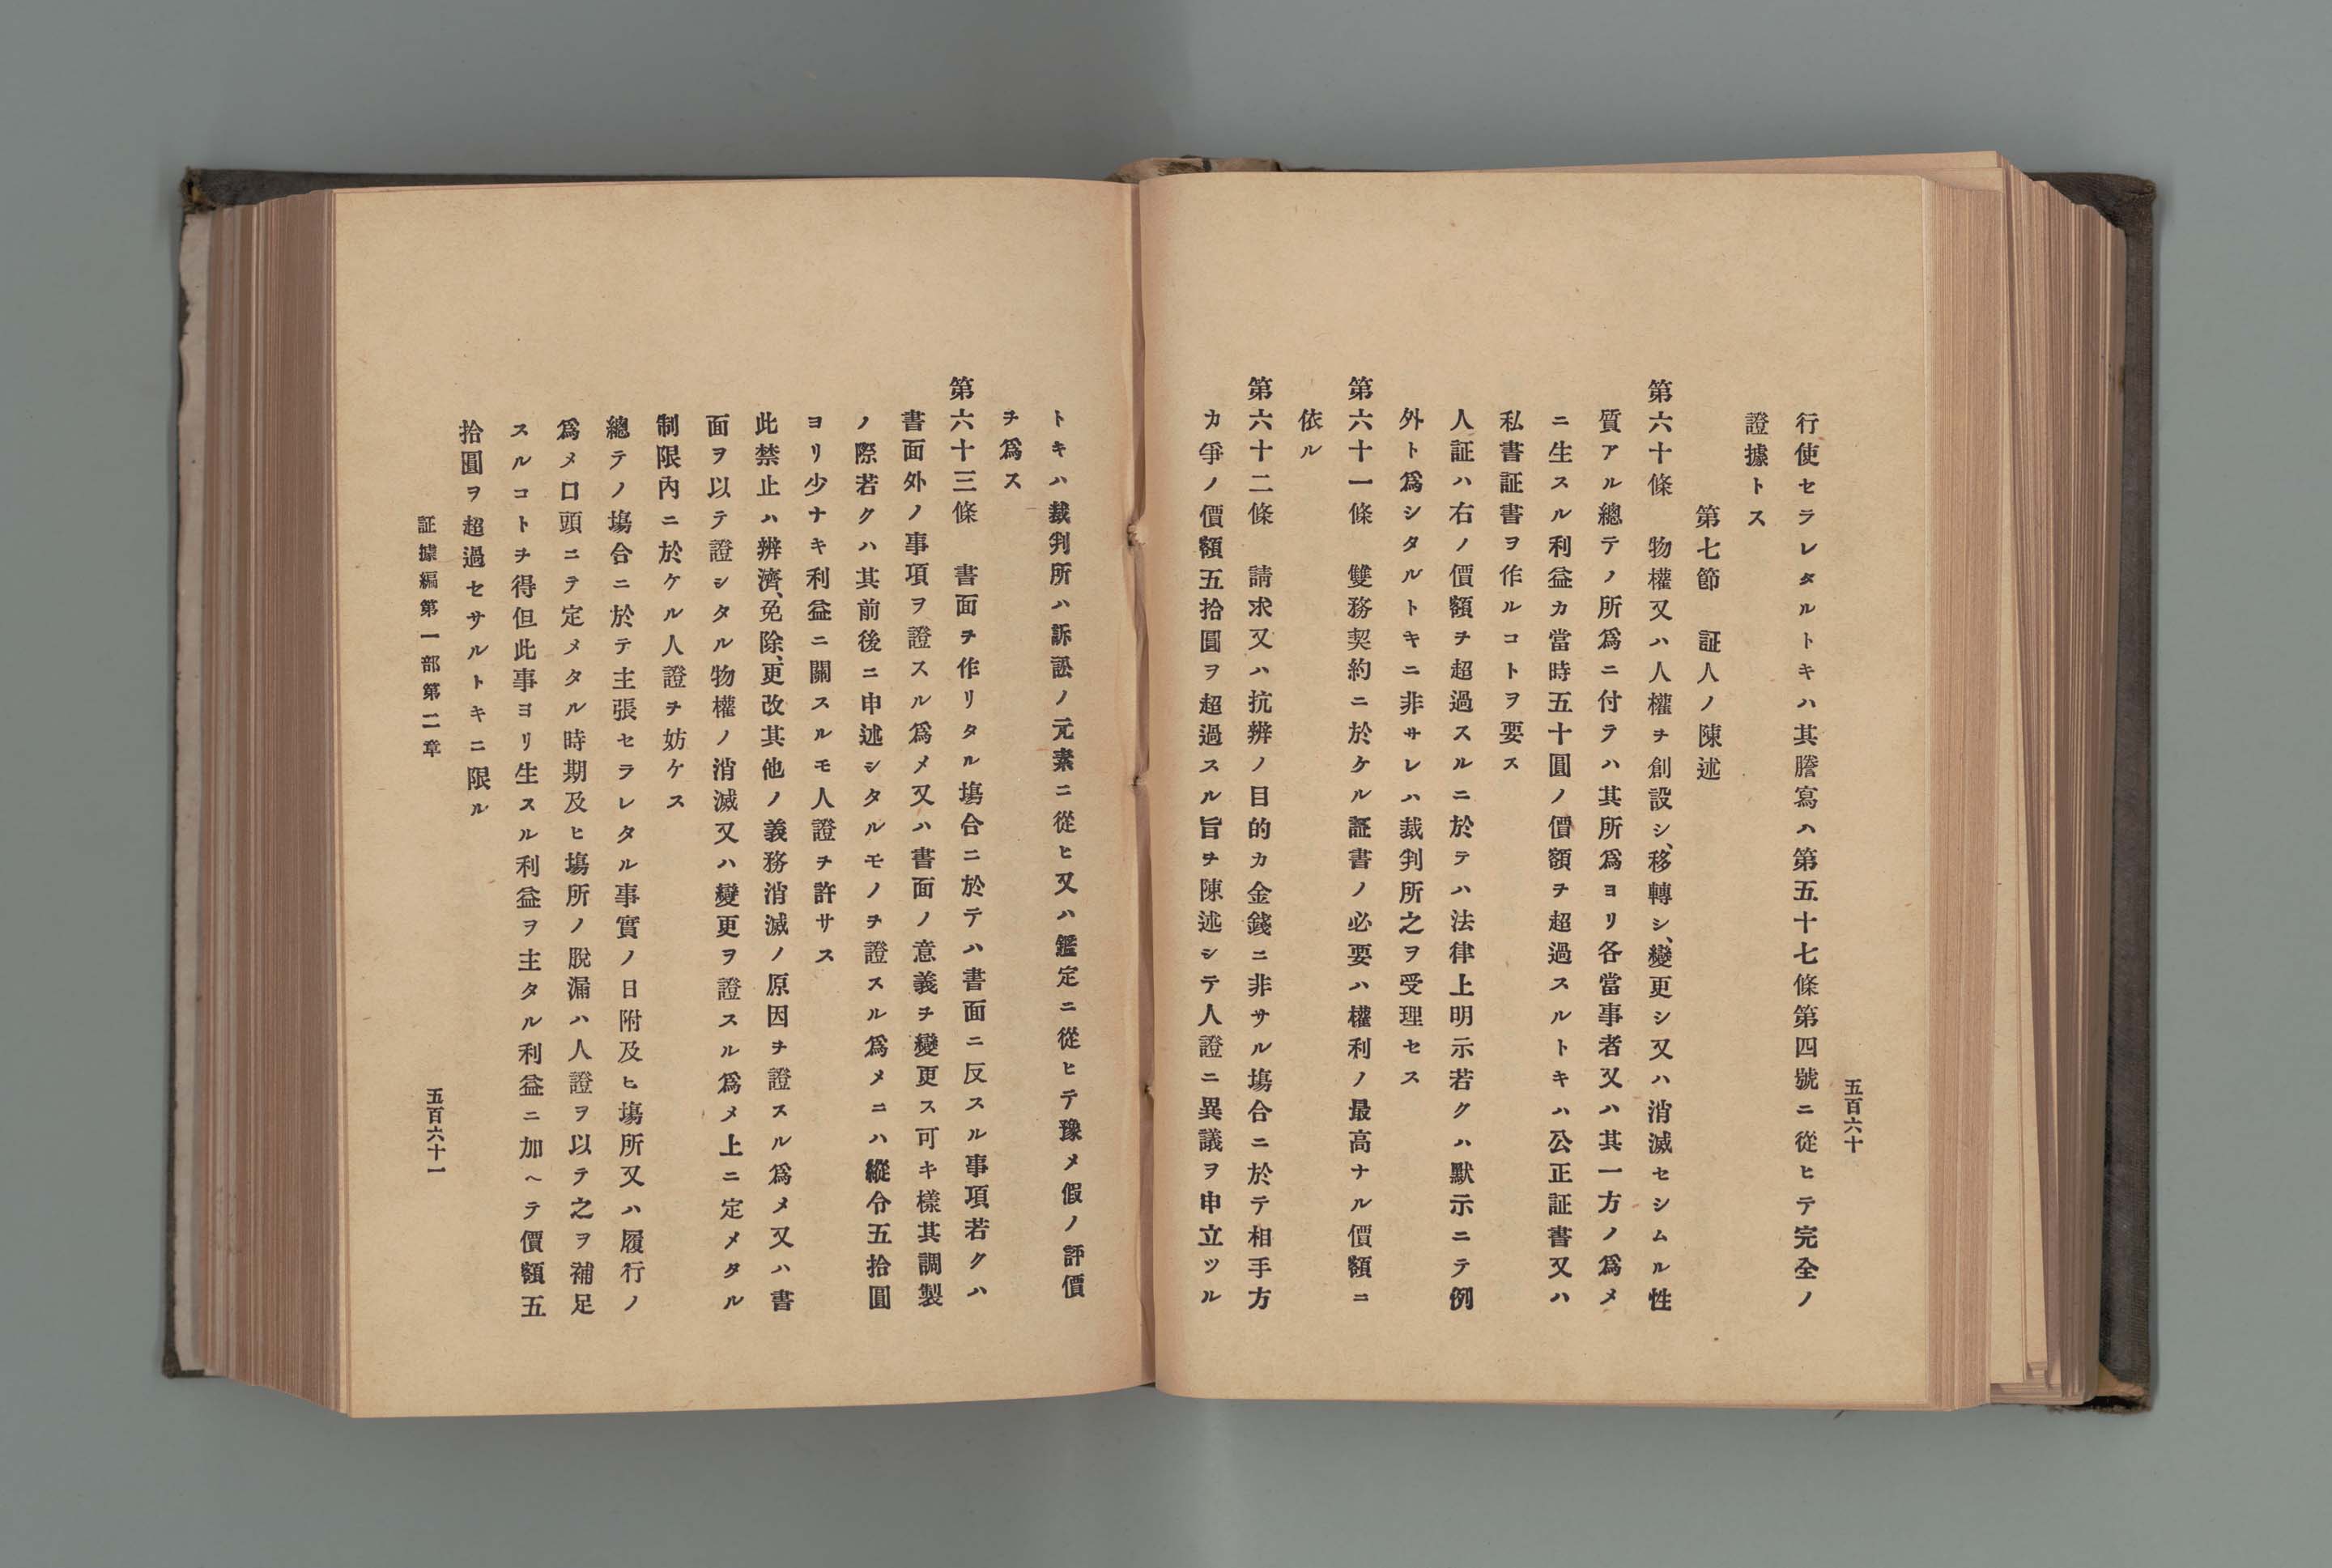 五百六十
行使セラレタルトキハ其謄寫ハ第五十七條第四號ニ從ヒテ完全ノ
證據トス
第七節　証人ノ陳述
第六十條　物權又ハ人權ヲ創設シ、移轉シ、變更シ又ハ消滅セシムル性
質アル總テノ所爲ニ付テハ其所爲ヨリ各當事者又ハ其一方ノ爲メ
ニ生スル利益カ當時五十圓ノ價額ヲ超過スルトキハ公正証書又ハ
私書証書ヲ作ルコトヲ要ス
人証ハ右ノ價額ヲ超過スルニ於テハ法律上明示若クハ默示ニテ例
外ト爲シタルトキニ非サレハ裁判所之ヲ受理セス
第六十一條　雙務契約ニ於ケル証書ノ必要ハ權利ノ最高ナル價額ニ
依ル
第六十二條　請求又ハ抗辨ノ目的カ金錢ニ非サル塲合ニ於テ相手方
カ爭ノ價額五拾圓ヲ超過スル旨ヲ陳述シテ人證ニ異議ヲ申立ツル
トキハ裁判所ハ訴訟ノ元素ニ從ヒ又ハ鑑定ニ從ヒテ豫メ假ノ評價
ヲ爲ス
第六十三條　書面ヲ作リタル塲合ニ於テハ書面ニ反スル事項若クハ
書面外ノ事項ヲ證スル爲メ又ハ書面ノ意義ヲ變更ス可キ樣其調製
ノ際若クハ其前後ニ申述シタルモノヲ證スル爲メニハ縱令五拾圓
ヨリ少ナキ利益ニ關スルモ人證ヲ許サス
此禁止ハ辨濟、免除、更改其他ノ義務消滅ノ原因ヲ證スル爲メ又ハ書
面ヲ以テ證シタル物權ノ消滅又ハ變更ヲ證スル爲メ上ニ定メタル
制限內ニ於ケル人證ヲ妨ケス
總テノ塲合ニ於テ主張セラレタル事實ノ日附及ヒ塲所又ハ履行ノ
爲メ口頭ニテ定メタル時期及ヒ塲所ノ脫漏ハ人證ヲ以テ之ヲ補足
スルコトヲ得但此事ヨリ生スル利益ヲ主タル利益ニ加ヘテ價額五
拾圓ヲ超過セサルトキニ限ル
証據編第一部第二章
五百六十一